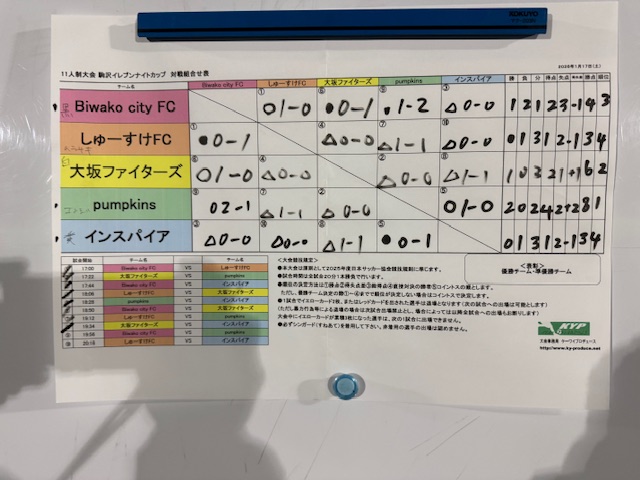 KOKUYO
2026年1月17日(土)
11人制大会 駒沢イレブンナイトカップ 対戦組合せ表
チーム名 Biwako city FC しゅーすけFC 大坂ファイターズ pumpkins インスパイア 勝 負 分 得点 失点 勝点 順位
Biwako city FC ① ○1-0 ⑥ ●0-1 ⑨ ●1-2 ③ △0-0 1 2 1 2 3 -1 4 3
しゅーすけFC ① ●0-1 ④ △0-0 ⑦ △1-1 ⑩ △0-0 0 1 3 1 2 -1 3 4
白 大坂ファイターズ ⑥ ○1-0 ④ △0-0 ② △0-0 ⑧ △1-1 1 0 3 2 1 +1 6 2
pumpkins ⑨ ○2-1 ⑦ △1-1 ② △0-0 ⑤ ○1-0 2 0 2 4 2 +2 8 1
黄 インスパイア ③ △0-0 ⑩ △0-0 ⑧ △1-1 ⑤ ●0-1 0 1 3 1 2 -1 3 4
試合開始 チーム名 VS チーム名
17:00 Biwako city FC VS しゅーすけFC
17:22 大坂ファイターズ VS pumpkins
17:44 Biwako city FC VS インスパイア
18:06 しゅーすけFC VS 大坂ファイターズ
18:28 pumpkins VS インスパイア
18:50 Biwako city FC VS 大坂ファイターズ
19:12 しゅーすけFC VS pumpkins
19:34 大坂ファイターズ VS インスパイア
19:56 Biwako city FC VS pumpkins
20:18 しゅーすけFC VS インスパイア
<大会競技規定>
●本大会は原則として2025年度日本サッカー協会競技規則に準じます。
●試合時間は全試合20分1本勝負で行います。
●順位の決定方法は①勝点②得失点差③総得点④直接対決の勝者⑤コイントスの順とします。
ただし、優勝チームの際の①～④までで順位が決定しない場合はコイントスで決定します。
●1試合でイエローカード2枚、またはレッドカードを出された選手は退場となります(次の試合への出場は可能とします)
(ただし暴力行為等による退場の場合は次試合出場禁止とし、場合によっては以降全試合への出場もお断りします)
大会中にイエローカードが累積3枚になった選手は、次の1試合に出場できません。
●必ずシンガード(すねあて)を着用して下さい。非着用の選手の出場は認めません。
<表彰>
優勝チーム・準優勝チーム
KYP
大会事務局 ケーワイプロデュース
http://www.ky-produce.net